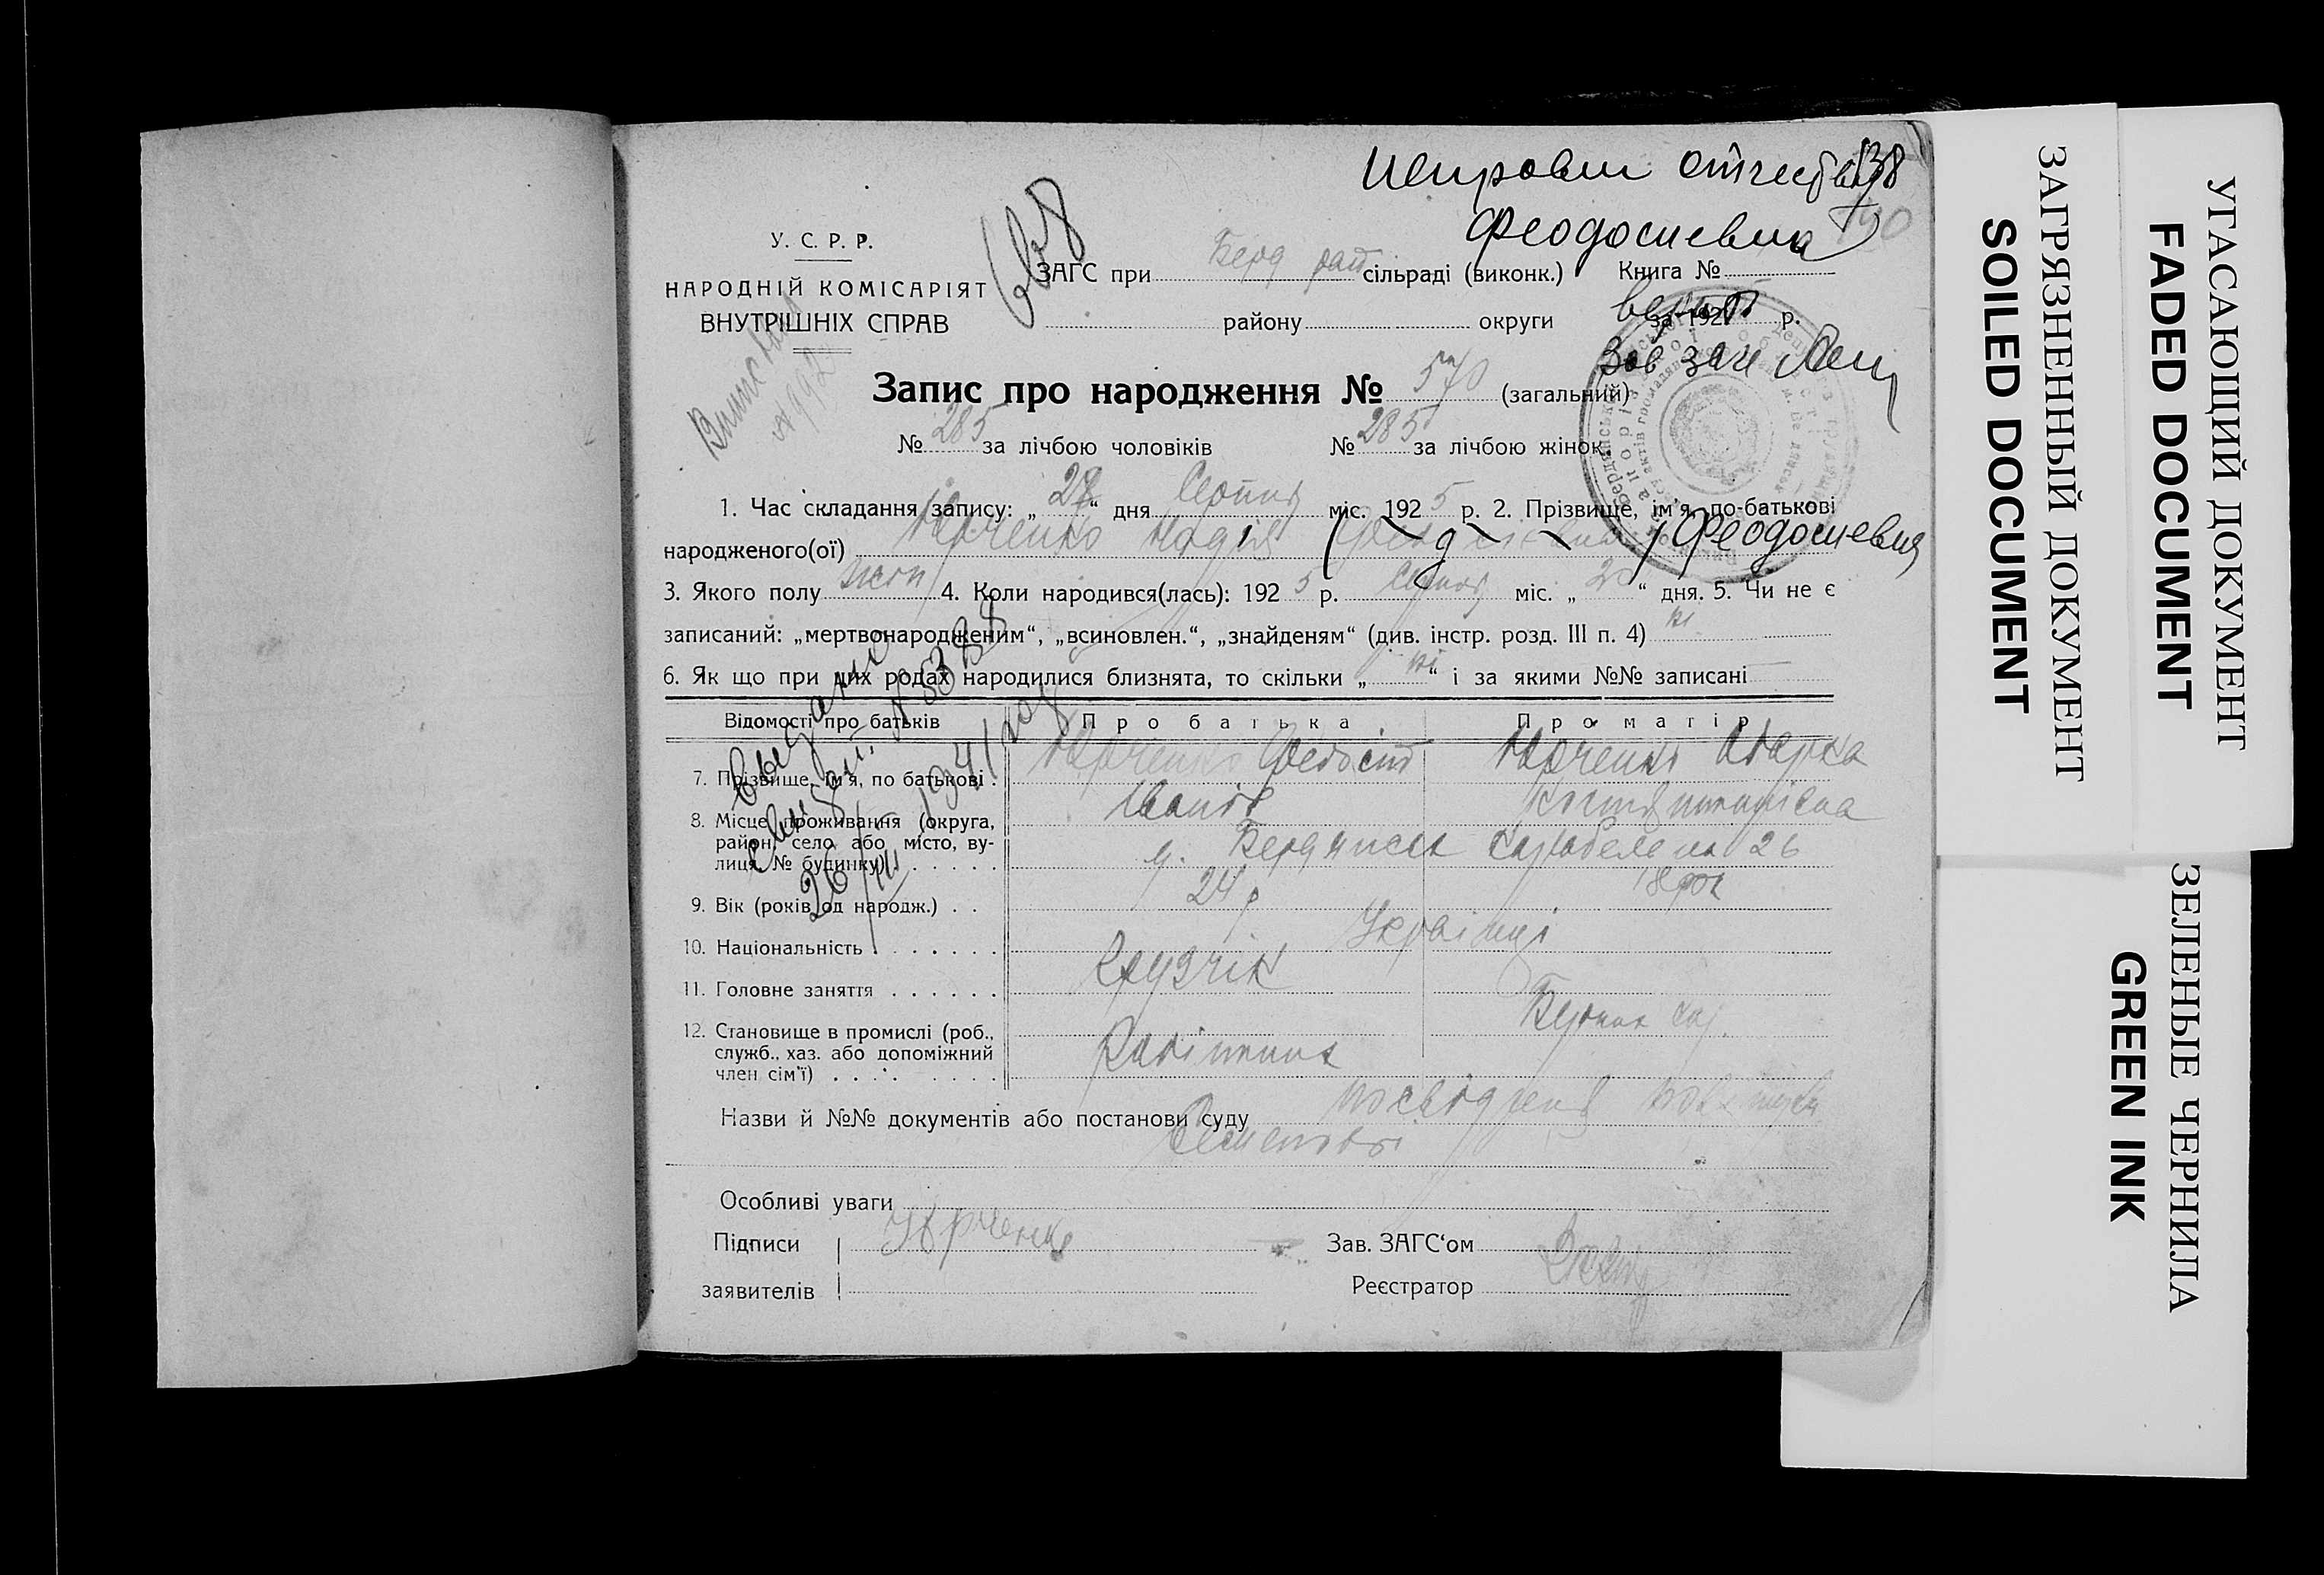 Исправил отчество
Феодосиевна
138
У. С. Р. Р.
НАРОДНІЙ КОМІСАРІЯТ
ВНУТРІШНІХ СПРАВ
ЗАГС при Берд сільраді (виконк.) Книга №
району округи за 192 р.
верить
Зав загс
Запис про народження № 570 (загальний)
№ 285 за лічбою чоловіків № 285 за лічбою жінок
1. Час складання запису: „ 28 “ дня Серпня міс. 1925 р. 2. Прізвище, ім'я, по-батькові
народженого(ої) Юрченко Надія Феодосиевна
3. Якого полу жін 4. Коли народився(лась): 1925 р. Серпня міс. „ “ дня. 5. Чи не є
записаний: „мертвонародженим“, „всиновлен.“, „знайденям“ (див. інстр. розд. III п. 4) ні
6. Як що при цих родах народилися близнята, то скільки „ ні “ і за якими №№ записані
Відомості про батьків Про батька Про матір
7. Прізвище, ім'я, по батькові . Юрченко Федосій Юрченко Марка
Іванов Костянтинівна
8. Місце проживання (округа,
район, село або місто, ву-
лиця, № будинку) . . . . . м. Бердянськ Карабельна 26
9. Вік (років од народж.) . . 24 р 18 рок
10. Національність . . . . . . . Українці
11. Головне заняття . . . . . . Грузчік
12. Становище в промислі (роб.,
служб., хаз. або допоміжний
член сім'ї) Робітник
Назви й №№ документів або постанови суду посвідченя
Особливі уваги
Підписи Юрченко Зав. ЗАГС'ом
заявителів Реєстратор
Выдано
свидет. № 5388
1941 год
УГАСАЮЩИЙ ДОКУМЕНТ
FADED DOCUMENT
ЗАГРЯЗНЕННЫЙ ДОКУМЕНТ
SOILED DOCUMENT
ЗЕЛЕНЫЕ ЧЕРНИЛА
GREEN INK